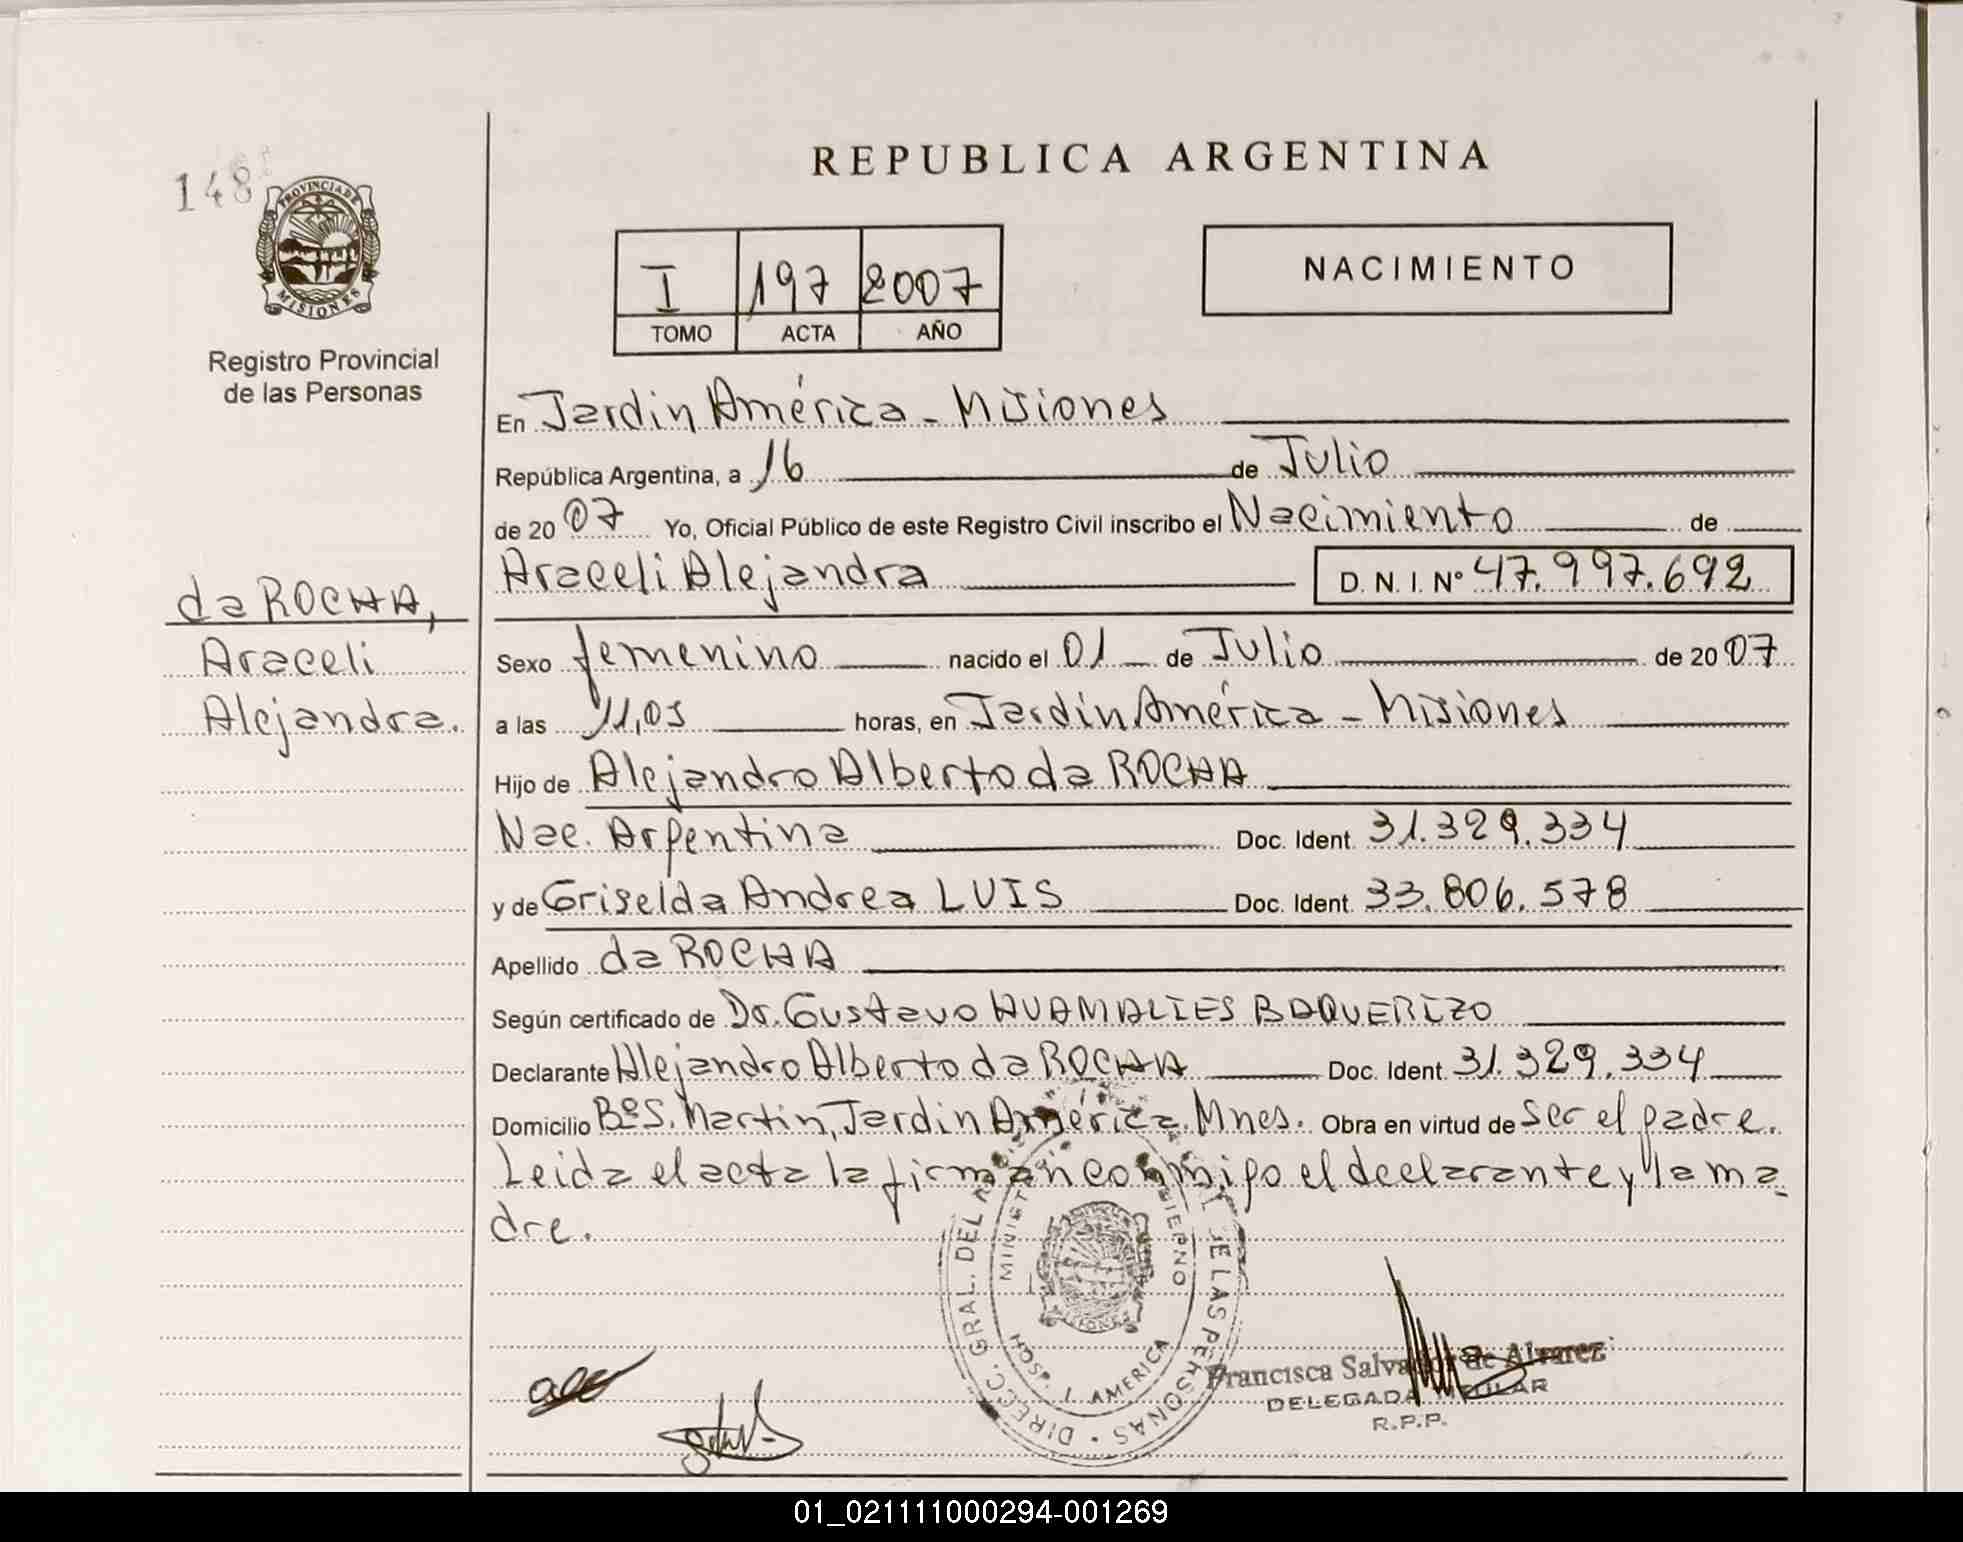 148
REPUBLICA ARGENTINA
PROVINCIA DE
MISIONES
Registro Provincial
de las Personas
I 197 2007
TOMO ACTA AÑO
NACIMIENTO
En Jardin América - Misiones
República Argentina, a 16 de Julio
de 2007 Yo, Oficial Público de este Registro Civil inscribo el Nacimiento de
Araceli Alejandra D.N.I. Nº 47.997.692
da ROCHA,
Araceli
Alejandra.
Sexo femenino nacido el 01 de Julio de 2007
a las 11,05 horas, en Jardin América - Misiones
Hijo de Alejandro Alberto da ROCHA
Nac. Argentina Doc. Ident. 31.329.334
y de Griselda Andrea LUIS Doc. Ident. 33.806.578
Apellido da ROCHA
Según certificado de Dr. Gustavo HUAMALIES BAQUERIZO
Declarante Alejandro Alberto da ROCHA Doc. Ident. 31.329.334
Domicilio Bº S. Martin, Jardin América. Mnes. Obra en virtud de ser el padre.
Leida el acta la firman conmigo el declarante y la ma
dre.
DIRECC. GRAL. DEL DE LAS PERSONAS
MINISTE GOBIERNO
HOSP. J. AMERICA
Francisca Salvador de Alvarez
DELEGADA TITULAR
R.P.P.
01_021111000294-001269